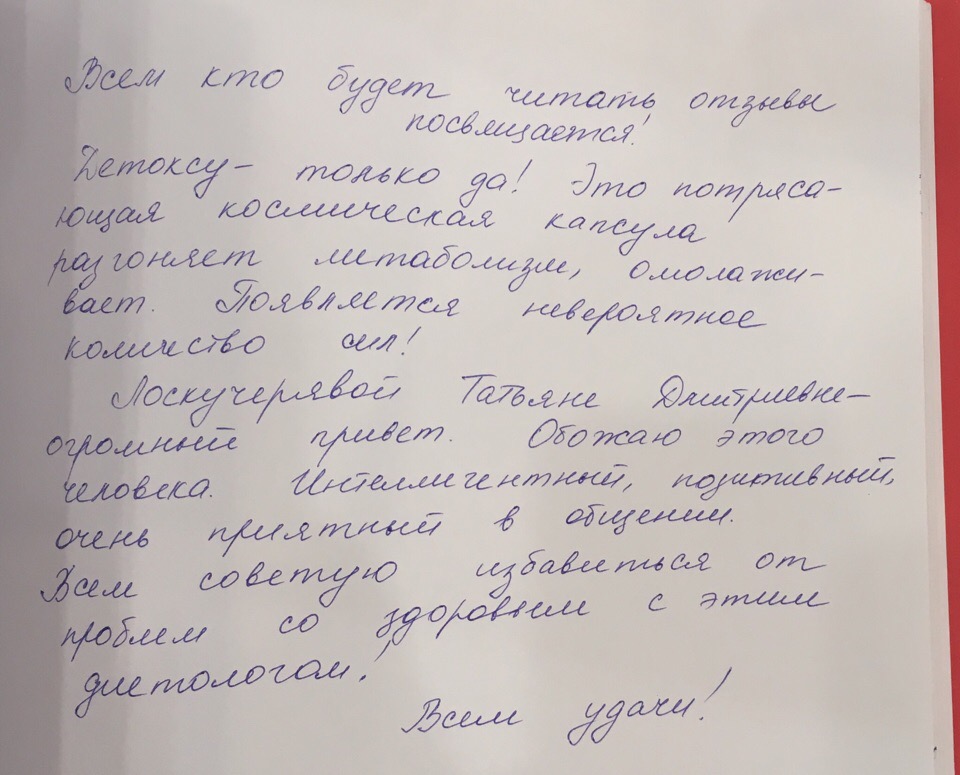 Всем кто будет читать отзывы
посвящается!
Детоксу - только да! Это потряса-
ющая космическая капсула
разгоняет метаболизм, омолажи-
вает. Появляется невероятное
количество сил!
Лоскучерявой Татьяне Дмитриевне -
огромный привет. Обожаю этого
человека. Интеллигентный, позитивный,
очень приятный в общении.
Всем советую избавиться от
проблем со здоровьем с этим
диетологом!
Всем удачи!